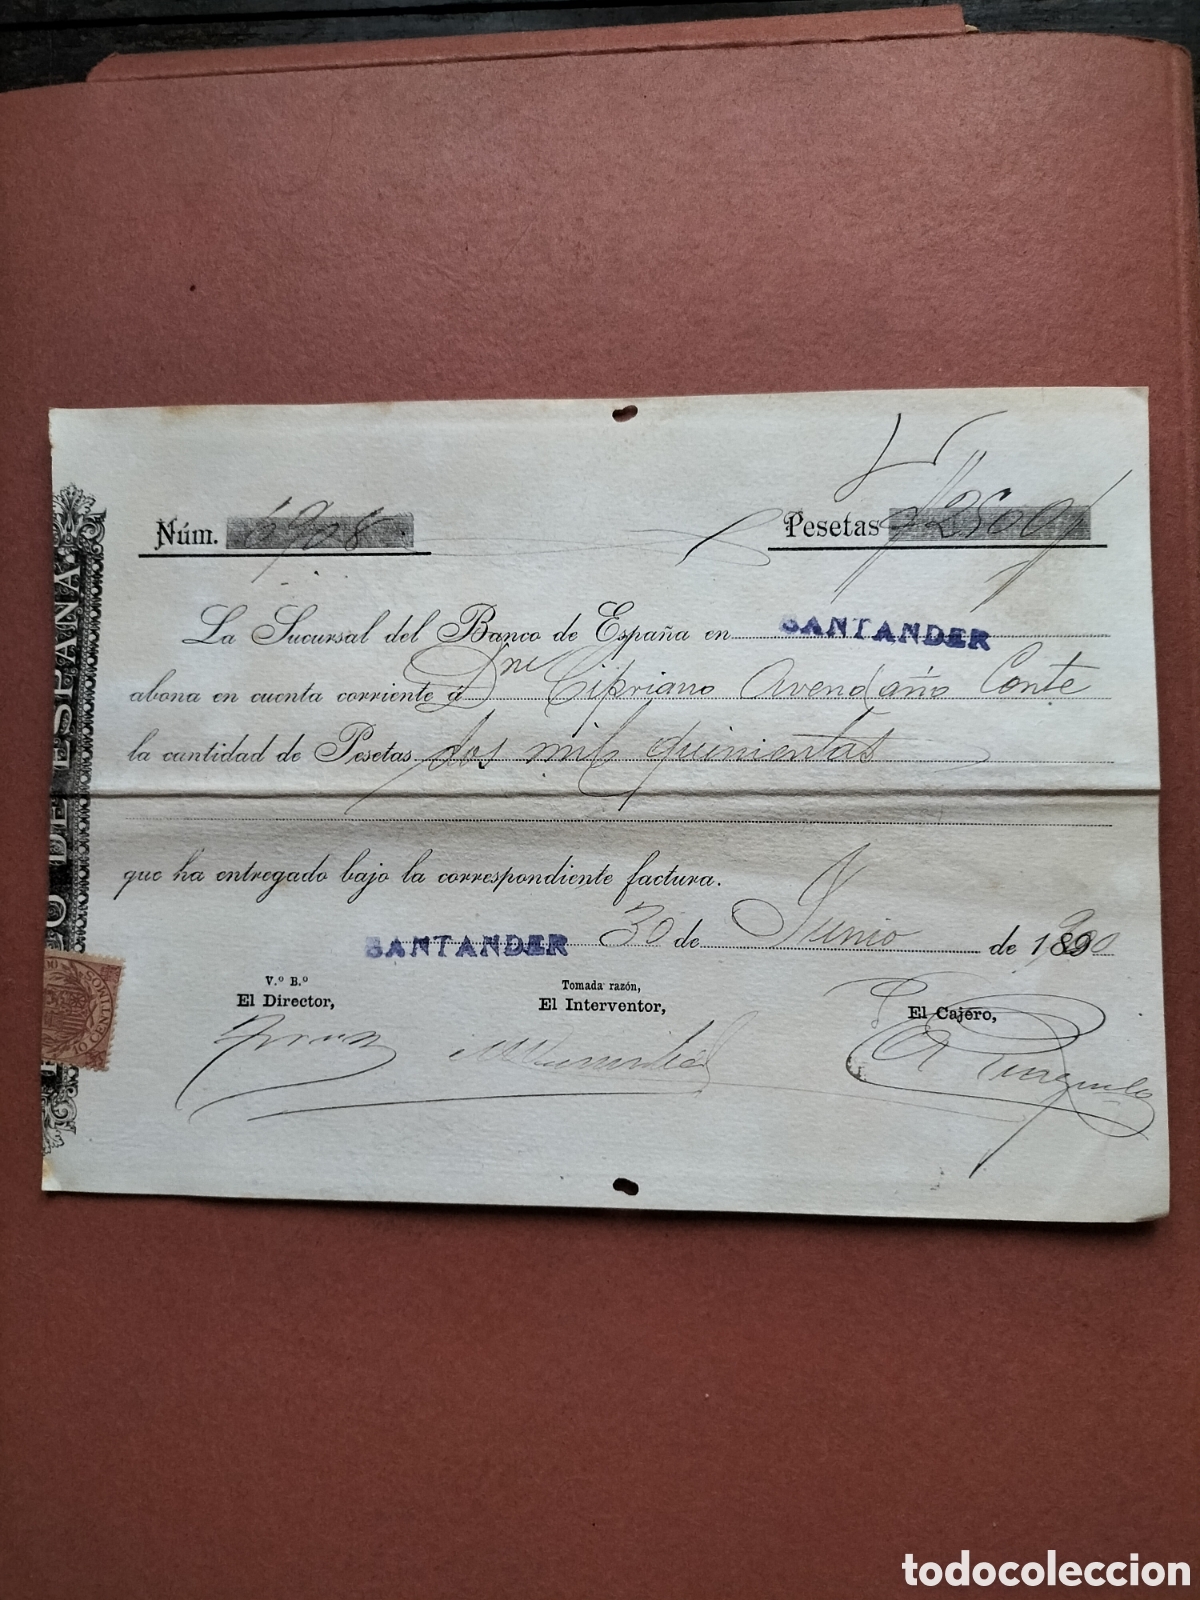 Núm. 6908
Pesetas #2500#
La Sucursal del Banco de España en SANTANDER
abona en cuenta corriente á Dn Cipriano Avendaño Conte
la cantidad de Pesetas dos mil quinientas
que ha entregado bajo la correspondiente factura.
SANTANDER 30 de Junio de 1900
V.º B.º
El Director,
Tomada razón,
El Interventor,
El Cajero,
O DE ESPAÑA
10 CENTIMOS
todocoleccion